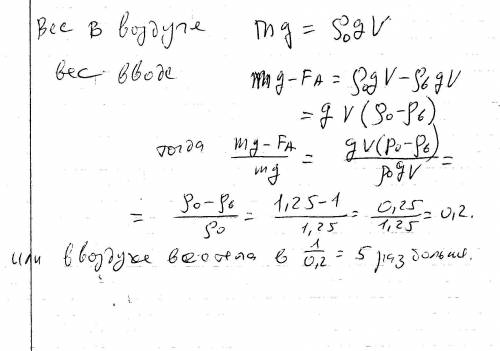 Вес в воздухе mg = ρ₀gV
вес в воде mg - FA = ρ₀gV - ρвgV
= gV(ρ₀ - ρв)
тогда (mg - FA)/mg = gV(ρ₀ - ρв)/ρ₀gV =
= (ρ₀ - ρв)/ρ₀ = (1,25 - 1)/1,25 = 0,25/1,25 = 0,2.
или в воздухе вес тела в 1/0,2 = 5 раз больше.